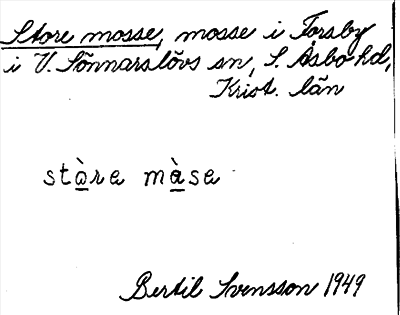 Store mosse, mosse i Torsby
i V. Sönnarslövs sn, S. Åsbo hd,
Krist. län
stòre màse
Bertil Svensson 1949